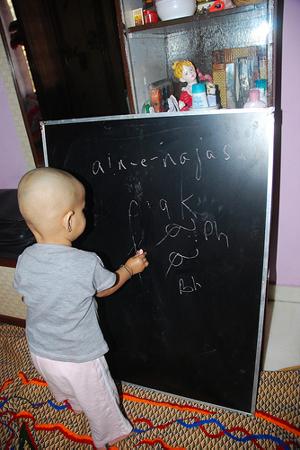 ain-e-najas
Pak
Ph
Bh